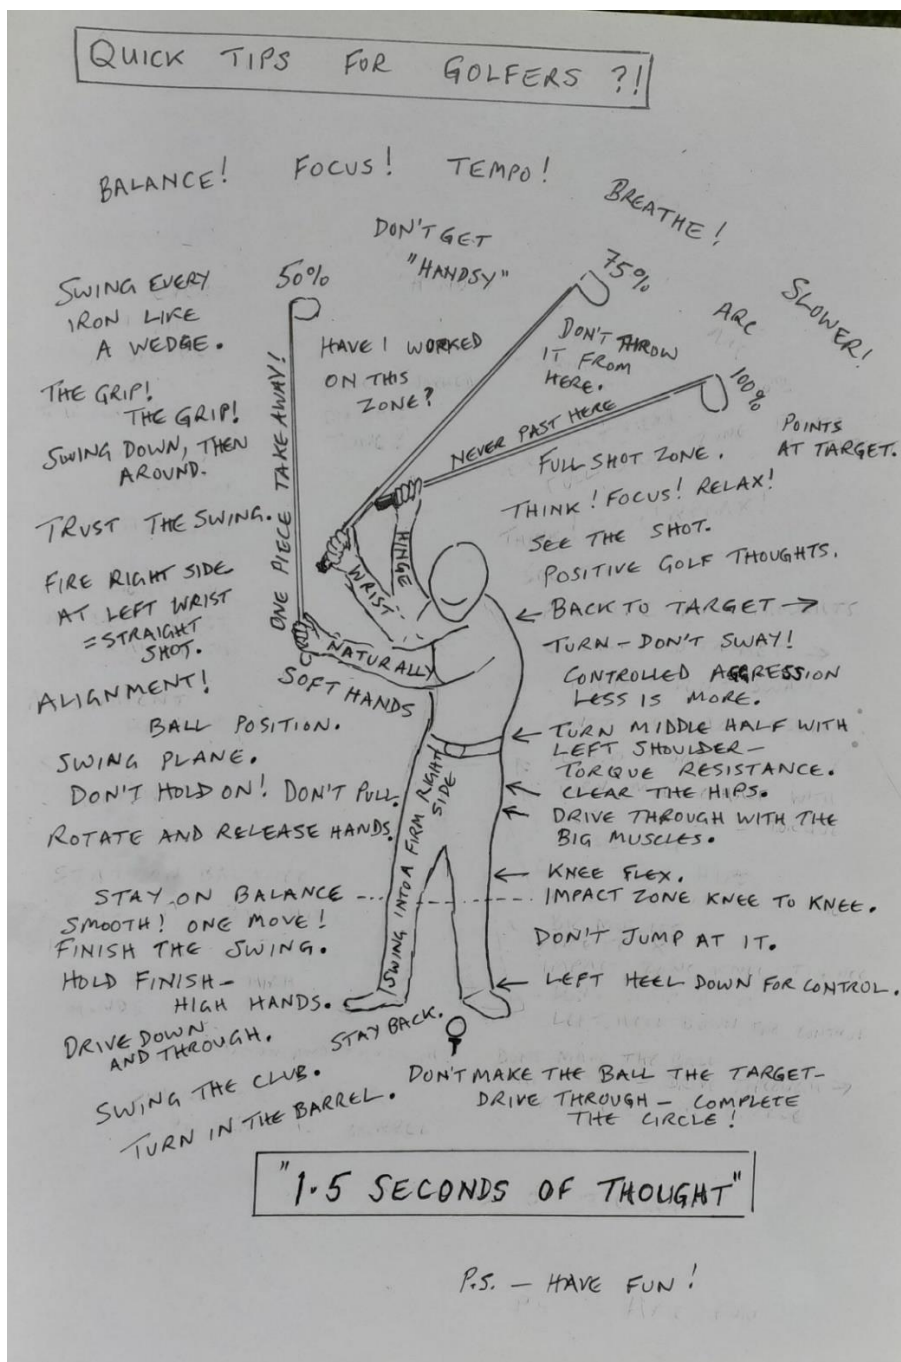 QUICK TIPS FOR GOLFERS ?!
BALANCE!
FOCUS!
TEMPO!
BREATHE!
SLOWER!
ARC
DON'T GET
"HANDSY"
50%
75%
100%
SWING EVERY
IRON LIKE
A WEDGE.
THE GRIP!
THE GRIP!
SWING DOWN, THEN
AROUND.
TRUST THE SWING.
FIRE RIGHT SIDE
AT LEFT WRIST
=STRAIGHT
SHOT.
ALIGNMENT!
BALL POSITION.
SWING PLANE.
DON'T HOLD ON! DON'T PULL.
ROTATE AND RELEASE HANDS.
STAY ON BALANCE
SMOOTH! ONE MOVE!
FINISH THE SWING.
HOLD FINISH-
HIGH HANDS.
DRIVE DOWN
AND THROUGH.
SWING THE CLUB.
TURN IN THE BARREL.
ONE PIECE TAKEAWAY!
HAVE I WORKED
ON THIS
ZONE?
DON'T THROW
IT FROM
HERE.
NEVER PAST HERE
POINTS
AT TARGET.
FULL SHOT ZONE.
THINK! FOCUS! RELAX!
SEE THE SHOT.
POSITIVE GOLF THOUGHTS.
HINGE
WRIST
NATURALLY
SOFT HANDS
BACK TO TARGET →
TURN - DON'T SWAY!
CONTROLLED AGGRESSION
LESS IS MORE.
TURN MIDDLE HALF WITH
LEFT SHOULDER-
TORQUE RESISTANCE.
CLEAR THE HIPS.
DRIVE THROUGH WITH THE
BIG MUSCLES.
KNEE FLEX.
IMPACT ZONE KNEE TO KNEE.
DON'T JUMP AT IT.
LEFT HEEL DOWN FOR CONTROL.
SWING INTO A FIRM RIGHT
SIDE
STAY BACK.
DON'T MAKE THE BALL THE TARGET-
DRIVE THROUGH - COMPLETE
THE CIRCLE!
"1.5 SECONDS OF THOUGHT"
P.S. - HAVE FUN!